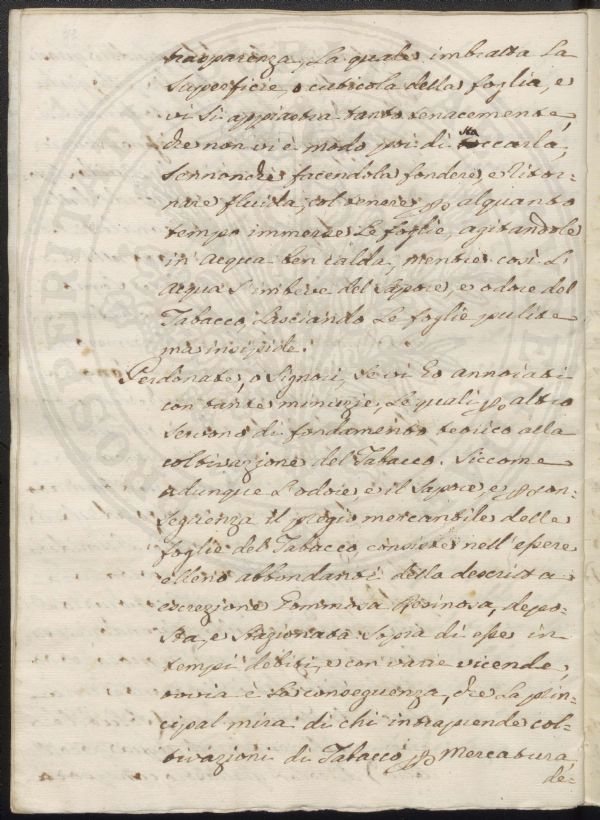 trasparenza, La quale imbratta La
Superficie, o cuticola della foglia, e
vi Si appiastra tanto tenacemente,
che non vi è modo poi di staccarla,
Sennonchè facendola fondere, e Ritor-
nare fluida, col tenere per alquanto
tempo immerse Le foglie, agitandole
in acqua ben calda, mentre così L'
acqua S'imbeve del Sapore, e odore del
Tabacco, Lasciando Le foglie pulite
ma insipide.
Perdonate, o Signori, Se vi ho annoiati
con tante minuzie, Le quali per altro
Servono di fondamento teorico alla
coltivazione del Tabacco. Siccome
adunque L'odore e il Sapore, e per con-
seguenza il pregio mercantile delle
foglie del Tabacco, consiste nell'essere
elleno abbondanti della descritta
escrezione Gommosa Resinosa, depo-
sta, e Stagionata Sopra di esse in
tempi debiti, e con varie vicende,
ovvia è La conseguenza, che La prin-
cipal mira di chi intraprende col-
tivazioni di Tabacco per Mercatura,
dè-
PROSPERITATI